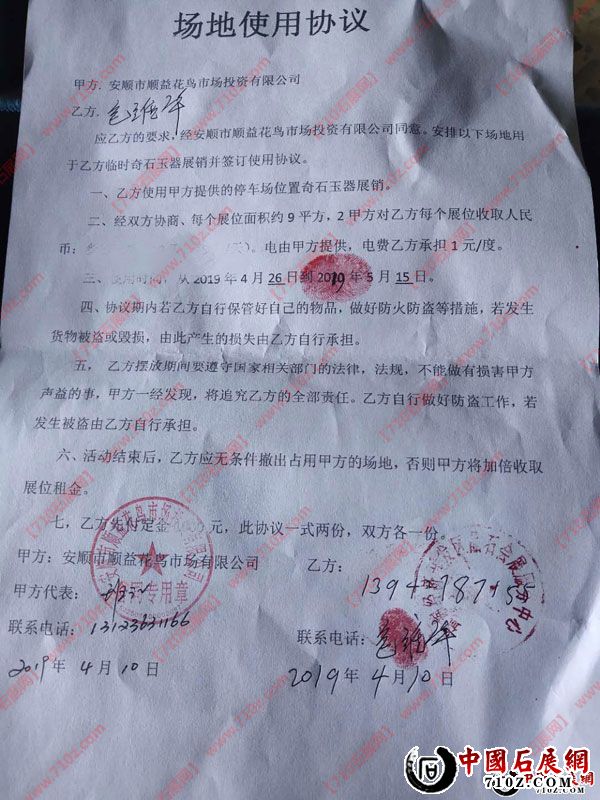 场地使用协议
甲方. 安顺市顺益花鸟市场投资有限公司
乙方.
应乙方的要求,经安顺市顺益花鸟市场投资有限公司同意。安排以下场地用
于乙方临时奇石玉器展销并签订使用协议。
一、乙方使用甲方提供的停车场位置奇石玉器展销。
二、经双方协商、每个展位面积约 9 平方,2 甲方对乙方每个展位收取人民
币: 天)。电由甲方提供,电费乙方承担 1 元/度。
三、使用时间,从 2019 年 4 月 26 日到 2019 年 5 月 15 日。
四、协议期内若乙方自行保管好自己的物品,做好防火防盗等措施,若发生
货物被盗或毁损,由此产生的损失由乙方自行承担。
五, 乙方摆放期间要遵守国家相关部门的法律,法规,不能做有损害甲方
声益的事,甲方一经发现,将追究乙方的全部责任。乙方自行做好防盗工作,若
发生被盗由乙方自行承担。
六、活动结束后,乙方应无条件撤出占用甲方的场地,否则甲方将加倍收取
展位租金。
七,乙方先付定金 元,此协议一式两份,双方各一份。
甲方:安顺市顺益花鸟市场有限公司
乙方:
甲方代表:
专用章
联系电话:13123631166
联系电话:
2019 年 4 月 10 日
2019 年 4 月 10 日
中國石展網
7102.COM